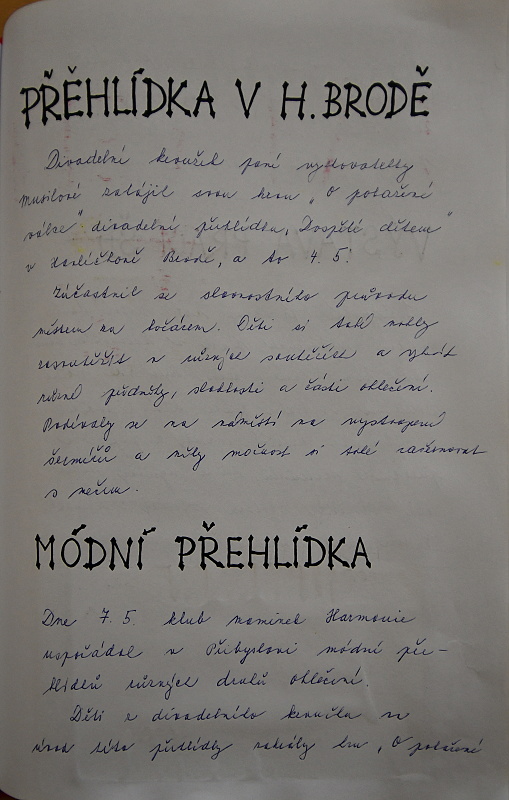 PŘĚHLÍDKA V H. BRODĚ
Divadelní kroužek paní vychovatelky
Musilové zahájil svou hrou „O pokažené
válce" divadelní přehlídku „Dospělí dětem"
v Havlíčkově Brodě, a to 4. 5.
Zúčastnil se slavnostního průvodu
městem za kočárem. Děti si také mohly
zasoutěžit v různých soutěžích a vyhrát
různé předměty, sladkosti a části oblečení.
Podívaly se na náměstí na vystoupení
šermířů a měly možnost si také zašermovat
s mečem.
MÓDNÍ PŘEHLÍDKA
Dne 7. 5. klub maminek Harmonie
uspořádal v Přibyslavi módní pře-
hlídku různých druhů oblečení.
Děti z divadelního kroužku na
úvod této přehlídky zahrály hru „O pokažené